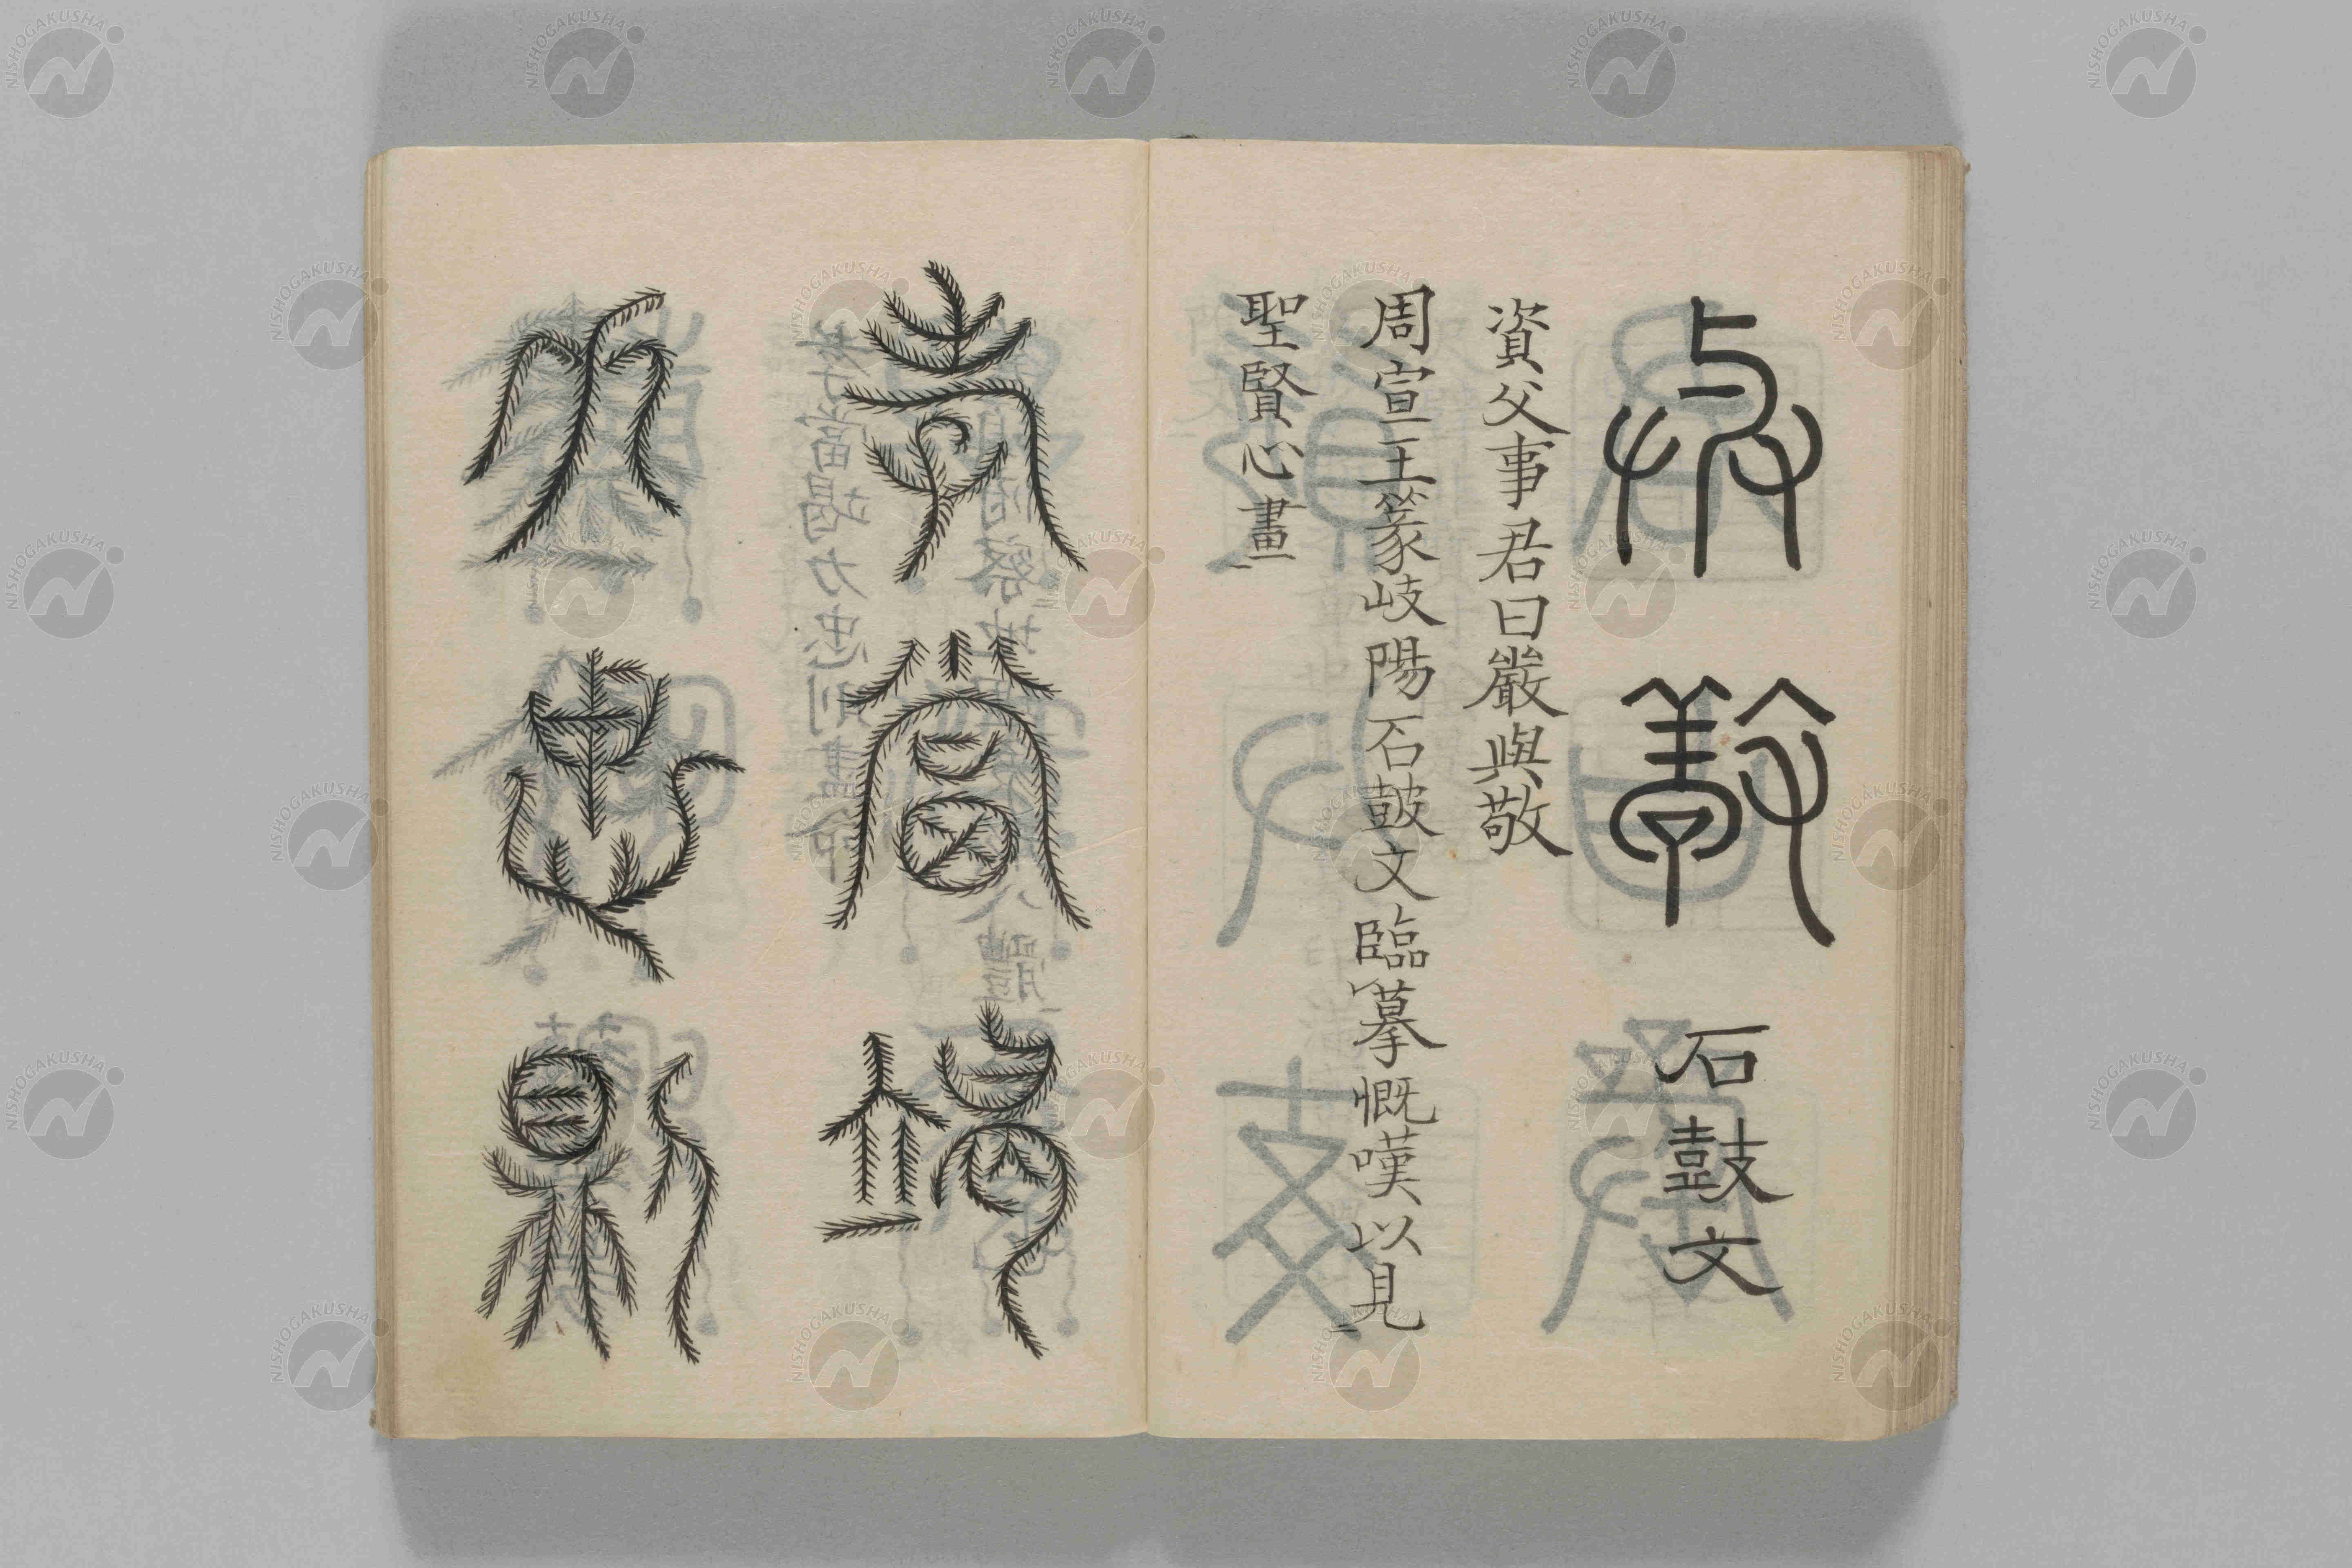 與敬 石鼓文
資父事君曰嚴與敬
周宣王篆岐陽石皷文臨摹慨嘆以見
聖賢心畫
孝當竭
力忠則
NISHOGAKUSHA